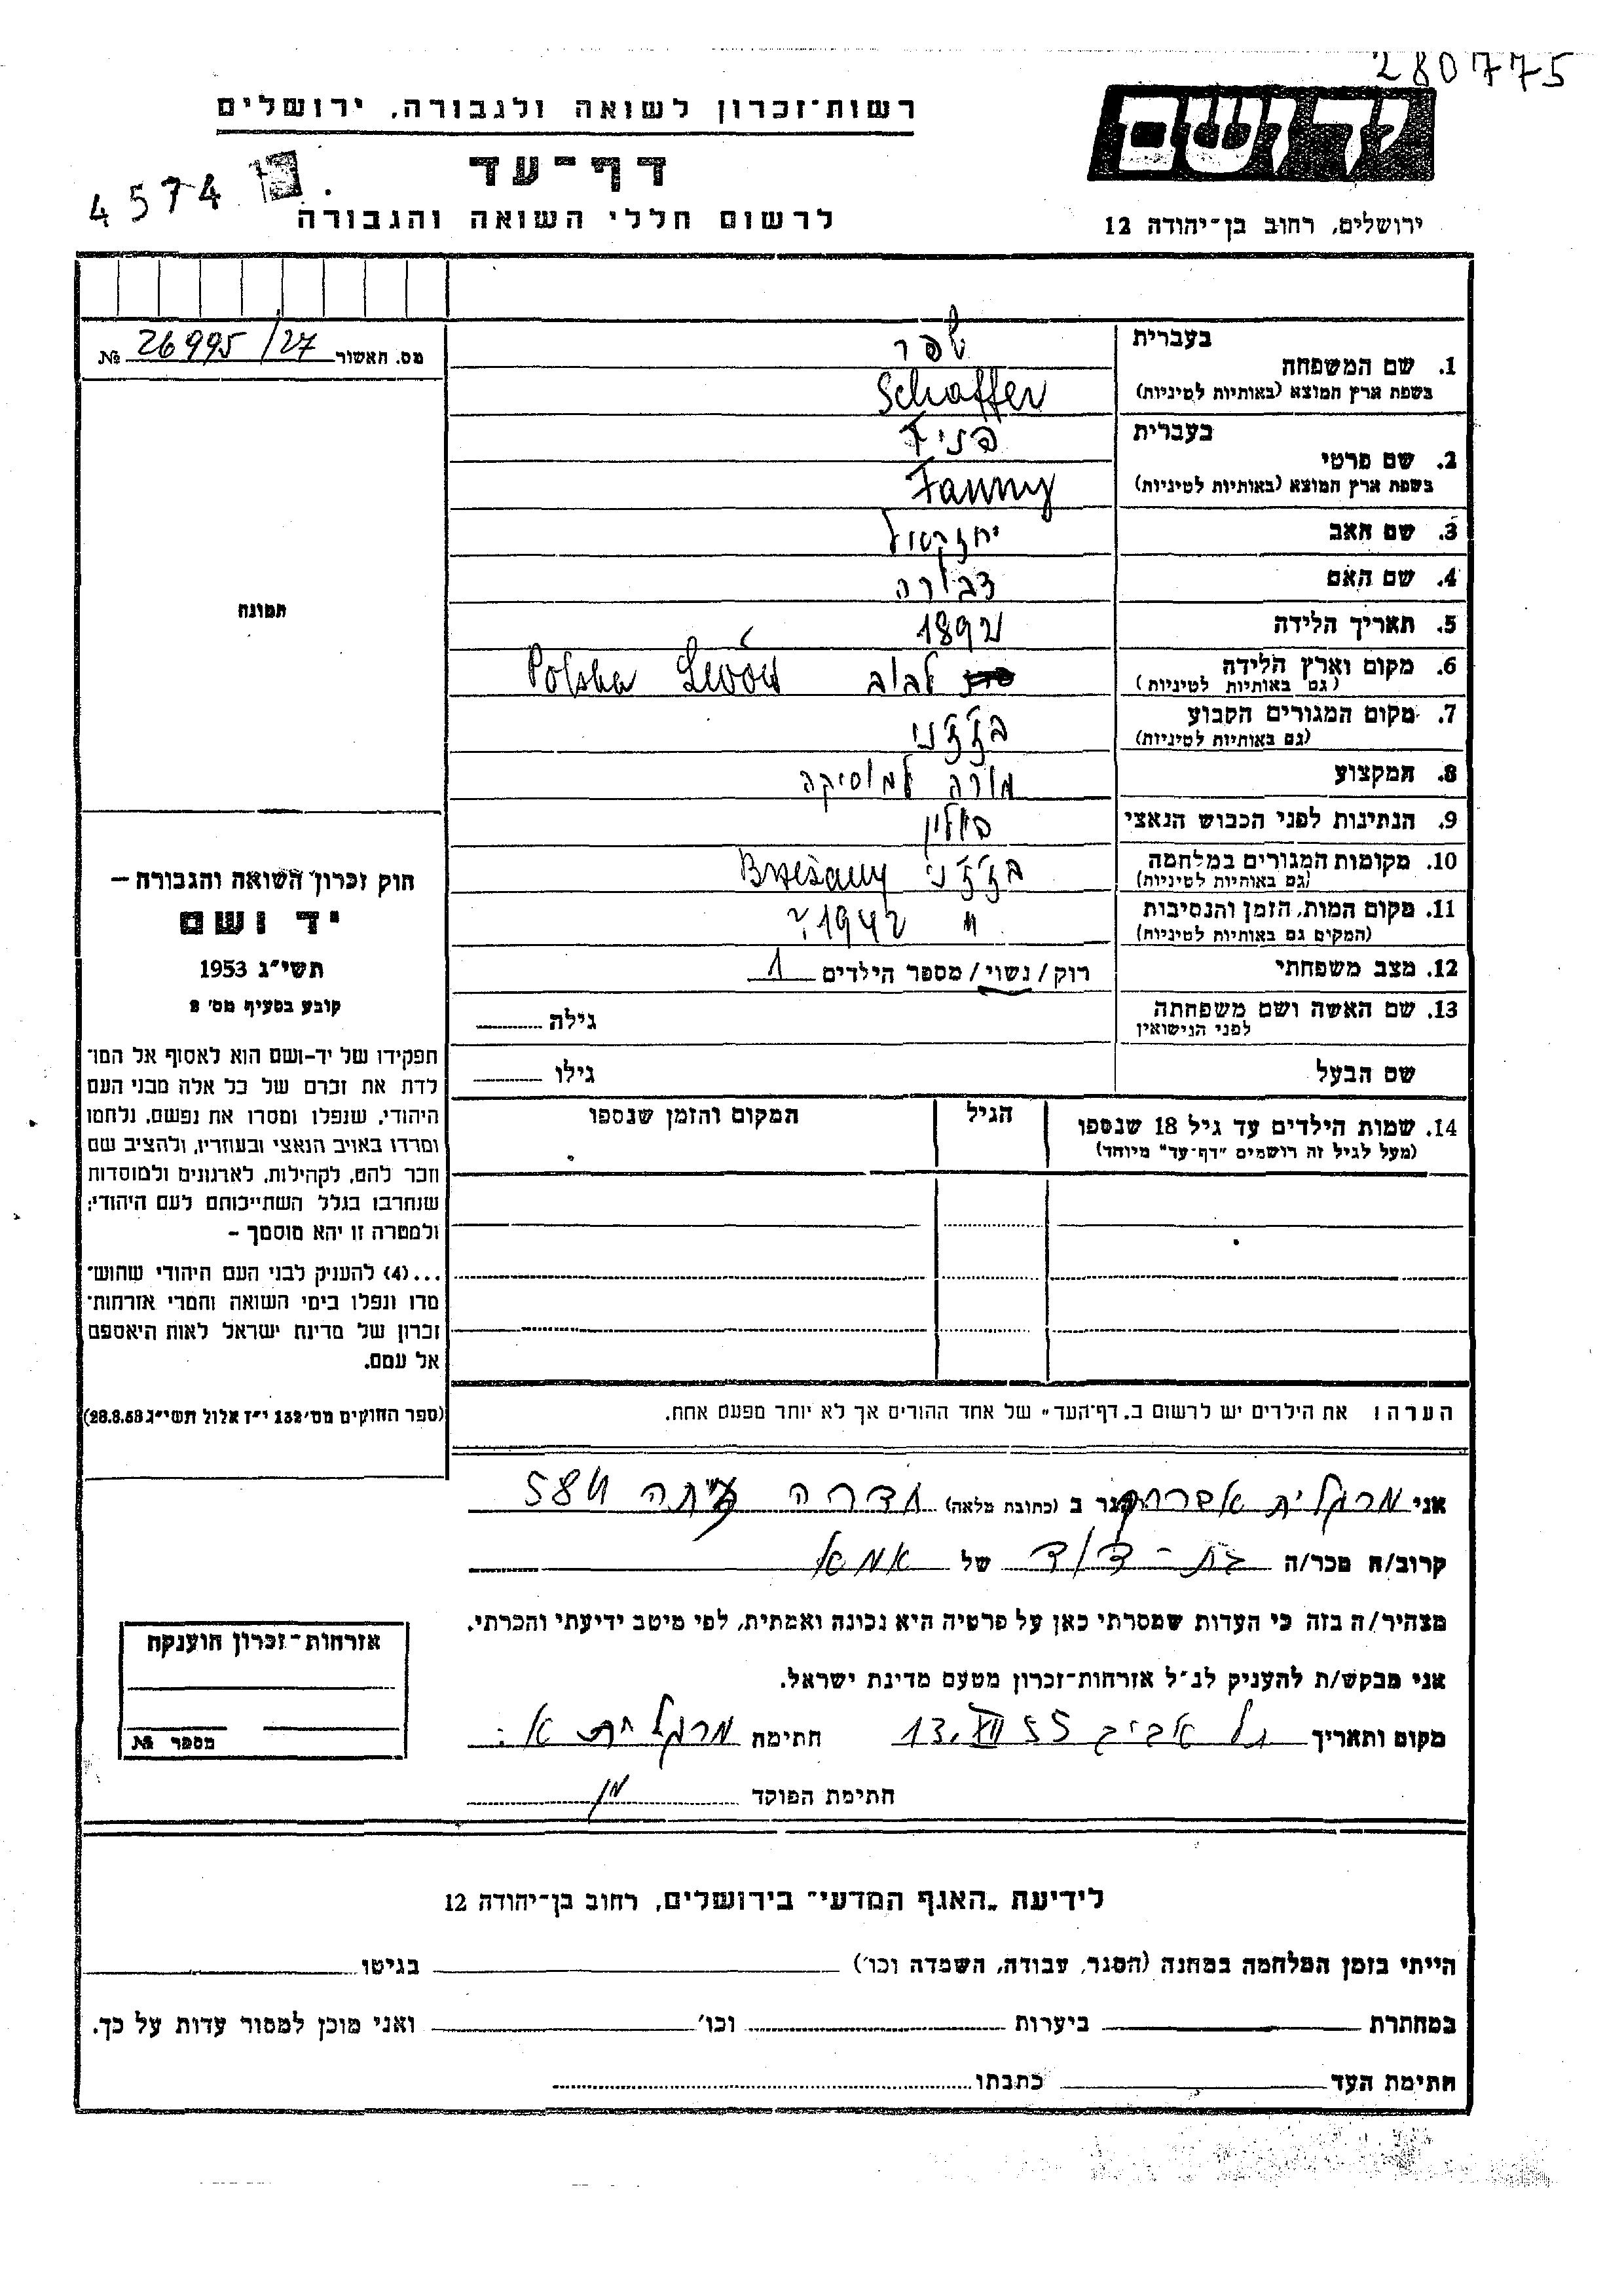 280775
יד ושם
ירושלים, רחוב בן-יהודה 12
רשות-זכרון לשואה ולגבורה, ירושלים
דף-עד
לרשום חללי השואה והגבורה
4574
מס. האשור 26995/27 №
תמונה
1. שם המשפחה
בעברית שפר
בשפת ארץ המוצא (באותיות לטיניות) Schaffer
2. שם פרטי
בעברית
בשפת ארץ המוצא (באותיות לטיניות) Fanny
3. שם האב יחזקאל
4. שם האם דבורה
5. תאריך הלידה 1892
6. מקום וארץ הלידה
(גם באותיות לטיניות) לבוב Lwów Polska
7. מקום המגורים הקבוע
(גם באותיות לטיניות) בז'ז'ני
8. המקצוע מורה למוסיקה
9. הנתינות לפני הכבוש הנאצי פולין
10. מקומות המגורים במלחמה
(גם באותיות לטיניות) בז'ז'ני Brzeżany
11. מקום המות, הזמן והנסיבות
(המקום גם באותיות לטיניות) " 1942 ?
12. מצב משפחתי רוק/נשוי/ מספר הילדים 1
13. שם האשה ושם משפחתה
לפני הנישואין
גילה
שם הבעל
גילו
14. שמות הילדים עד גיל 18 שנספו
(מעל לגיל זה רושמים "דף-עד" מיוחד)
הגיל
המקום והזמן שנספו
הערה: את הילדים יש לרשום ב"דף-העד" של אחד ההורים אך לא יותר מפעם אחת.
חוק זכרון השואה והגבורה –
יד ושם
תשי"ג 1953
קובע בסעיף מס' 2
תפקידו של יד-ושם הוא לאסוף אל המו-
לדת את זכרם של כל אלה מבני העם
היהודי, שנפלו ומסרו את נפשם, נלחמו
ומרדו באויב הנאצי ובעוזריו, ולהציב שם
וזכר להם, לקהילות, לארגונים ולמוסדות
שנחרבו בגלל השתייכותם לעם היהודי;
ולמטרה זו יהא מוסמך –
...(4) להעניק לבני העם היהודי שהוש-
מדו ונפלו בימי השואה והמרי אזרחות-
זכרון של מדינת ישראל לאות היאספם
אל עמם.
(ספר החוקים מס' 132 י"ז אלול תשי"ג 28.8.53)
אני מרגלית אברהם הגר ב (כתובת מלאה) חדרה 584
קרוב/ה מכר/ה בת-דוד של אמא
מצהיר/ה בזה כי העדות שמסרתי כאן על פרטיה היא נכונה ואמתית, לפי מיטב ידיעתי והכרתי.
אני מבקש/ת להעניק לנ"ל אזרחות-זכרון מטעם מדינת ישראל.
מקום ותאריך תל אביב 13.XII 55 חתימת מרגלית א.
חתימת הפוקד
אזרחות-זכרון הוענקה
מספר №
לידיעת "האגף המדעי" בירושלים, רחוב בן-יהודה 12
הייתי בזמן המלחמה במחנה (הסגר, עבודה, השמדה וכו') בגיטו
במחתרת ביערות וכו' ואני מוכן למסור עדות על כך.
חתימת העד כתבתו